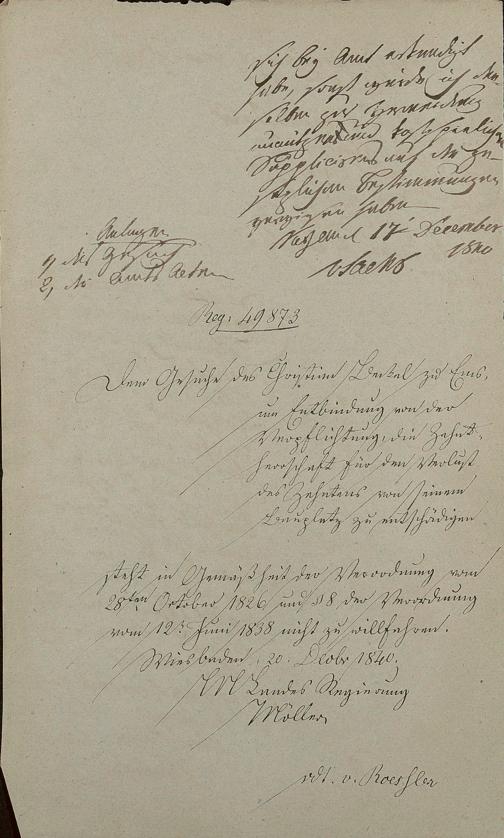 sich bey Amt erkundigt
habe, sonst würde ich den
selben zur Vermeidung
unnützen und kostspieligen
Supplicirens auf die ge-
setzlichen Bestimmungen
verwiesen haben
17 December
1840
Anlagen
1, das Gesuch
2, die Amts Acten
Reg: 49873
Dem Gesuche des Christian zu Ems,
um Entbindung von der
Verpflichtung, die Zehnt-
herrschaft für den Verlust
des Zehntens von seinem
Bauplatz zu entschädigen
steht in Gemäßheit der Verordnung vom
28ten October 1826 und §8, der Verordnung
vom 12t. Juni 1838 nicht zu willfahren.
Wiesbaden, 20. Decbr 1840.
Landes Regierung
Möller
vdt. v. Roeßler